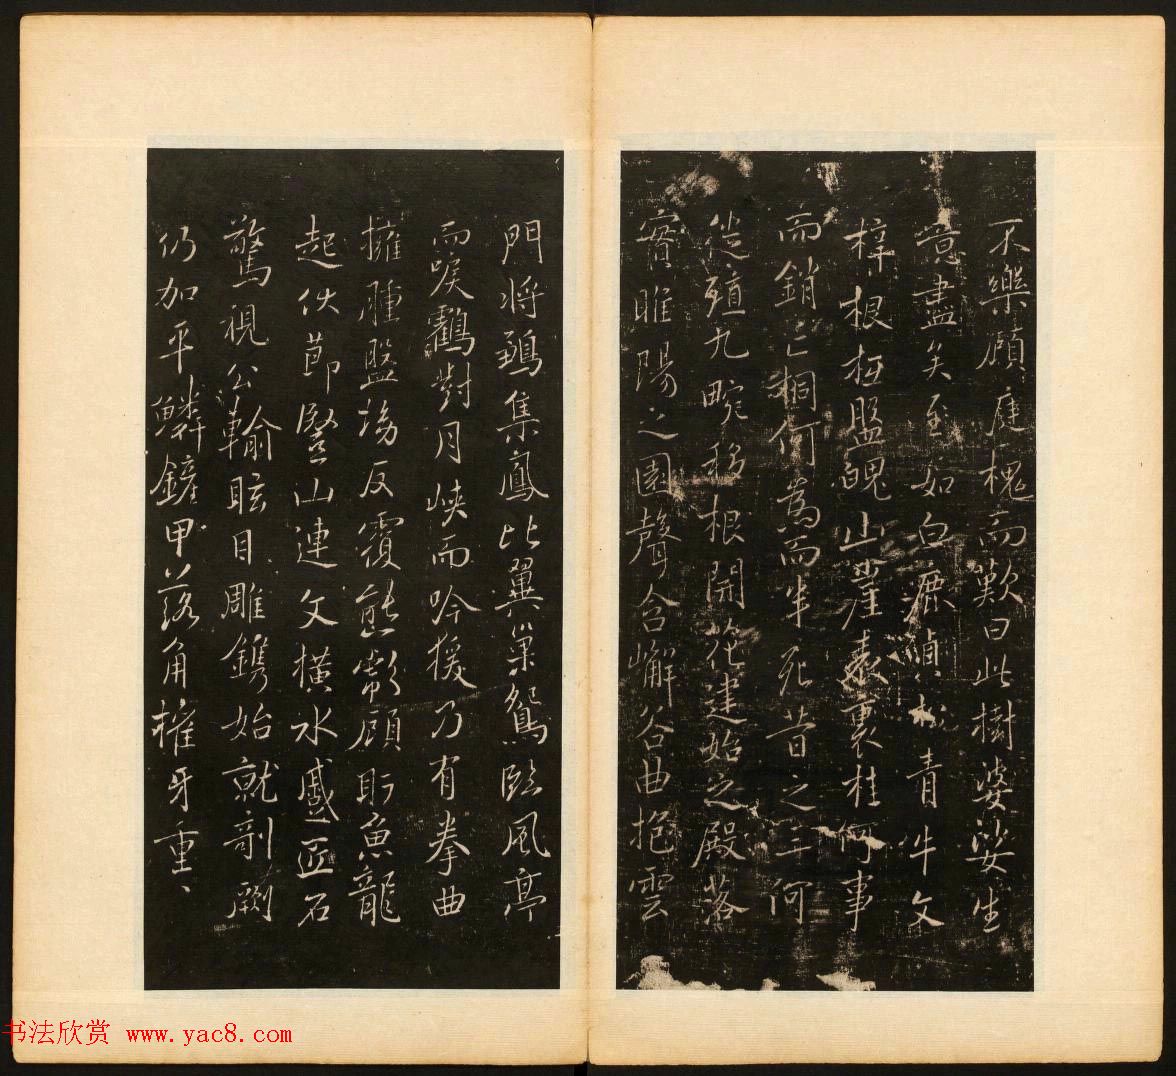 不樂顧庭槐而歎曰此樹婆娑生
意盡矣至如白鹿貞松青牛文
梓根柢盤魄山崖表裏桂何事
而銷亡桐何為而半死昔之三何
徙殖九畹移根開花建始之殿落
實睢陽之園聲含嶰谷曲抱雲
門將鶵集鳳比翼巢鴛臨風亭
而唳鶴對月峽而吟猨乃有拳曲
擁腫盤坳反覆熊彪顧盼魚龍
起伏節豎山連文橫水蹙匠石
驚視公輸眩目雕鐫始就剞劂
仍加平鱗鏟甲落角摧牙重〻
书法欣赏 www.yac8.com